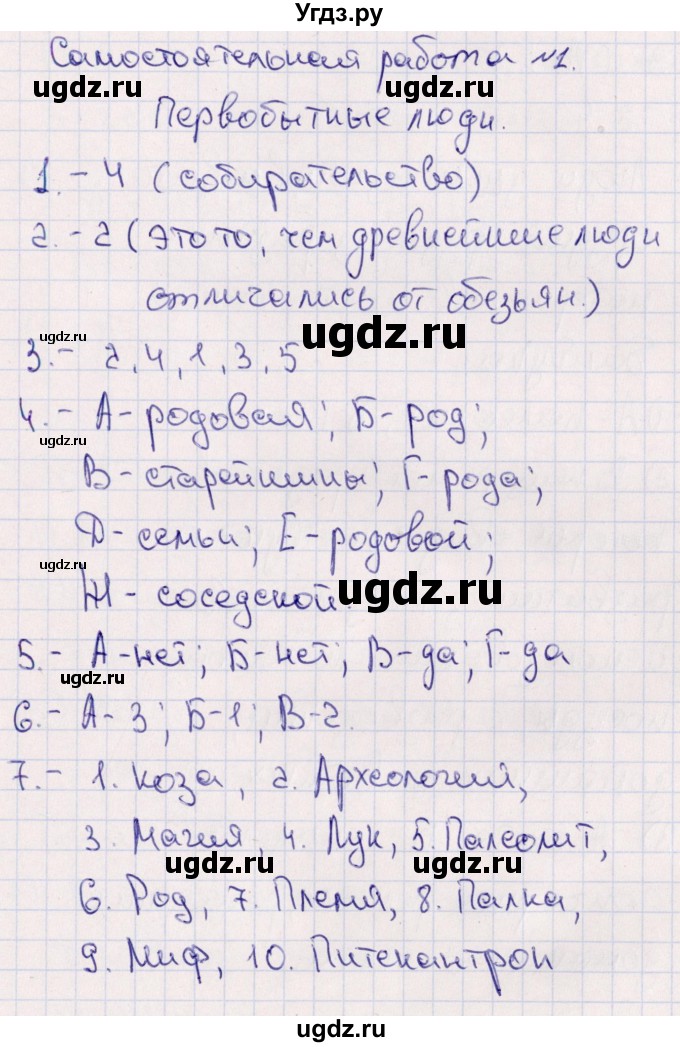 Угдз.ру
Самостоятельная работа №1.
ugdz.ru ugdz.ru
Первобытные люди.
1. - 4 (собирательство)
ugdz.ru ugdz.ru
2. - 2 (Это то, чем древнейшие люди
отличались от обезьян.)
ugdz.ru ugdz.ru
3. - 2, 4, 1, 3, 5
4. - А - родовая; Б - род;
ugdz.ru
В - старейшины; Г - рода;
Д - семьи; Е - родовой;
ugdz.ru ugdz.ru
Ж - соседской.
5. - А - нет; Б - нет; В - да; Г - да
ugdz.ru
6. - А - 3; Б - 1; В - 2.
7. - 1. Коза, 2. Археология,
3. Магия, 4. Лук, 5. Палеолит,
ugdz.ru ugdz.ru
6. Род, 7. Племя, 8. Палка,
9. Миф, 10. Питекантроп
ugdz.ru ugdz.ru
ugdz.ru